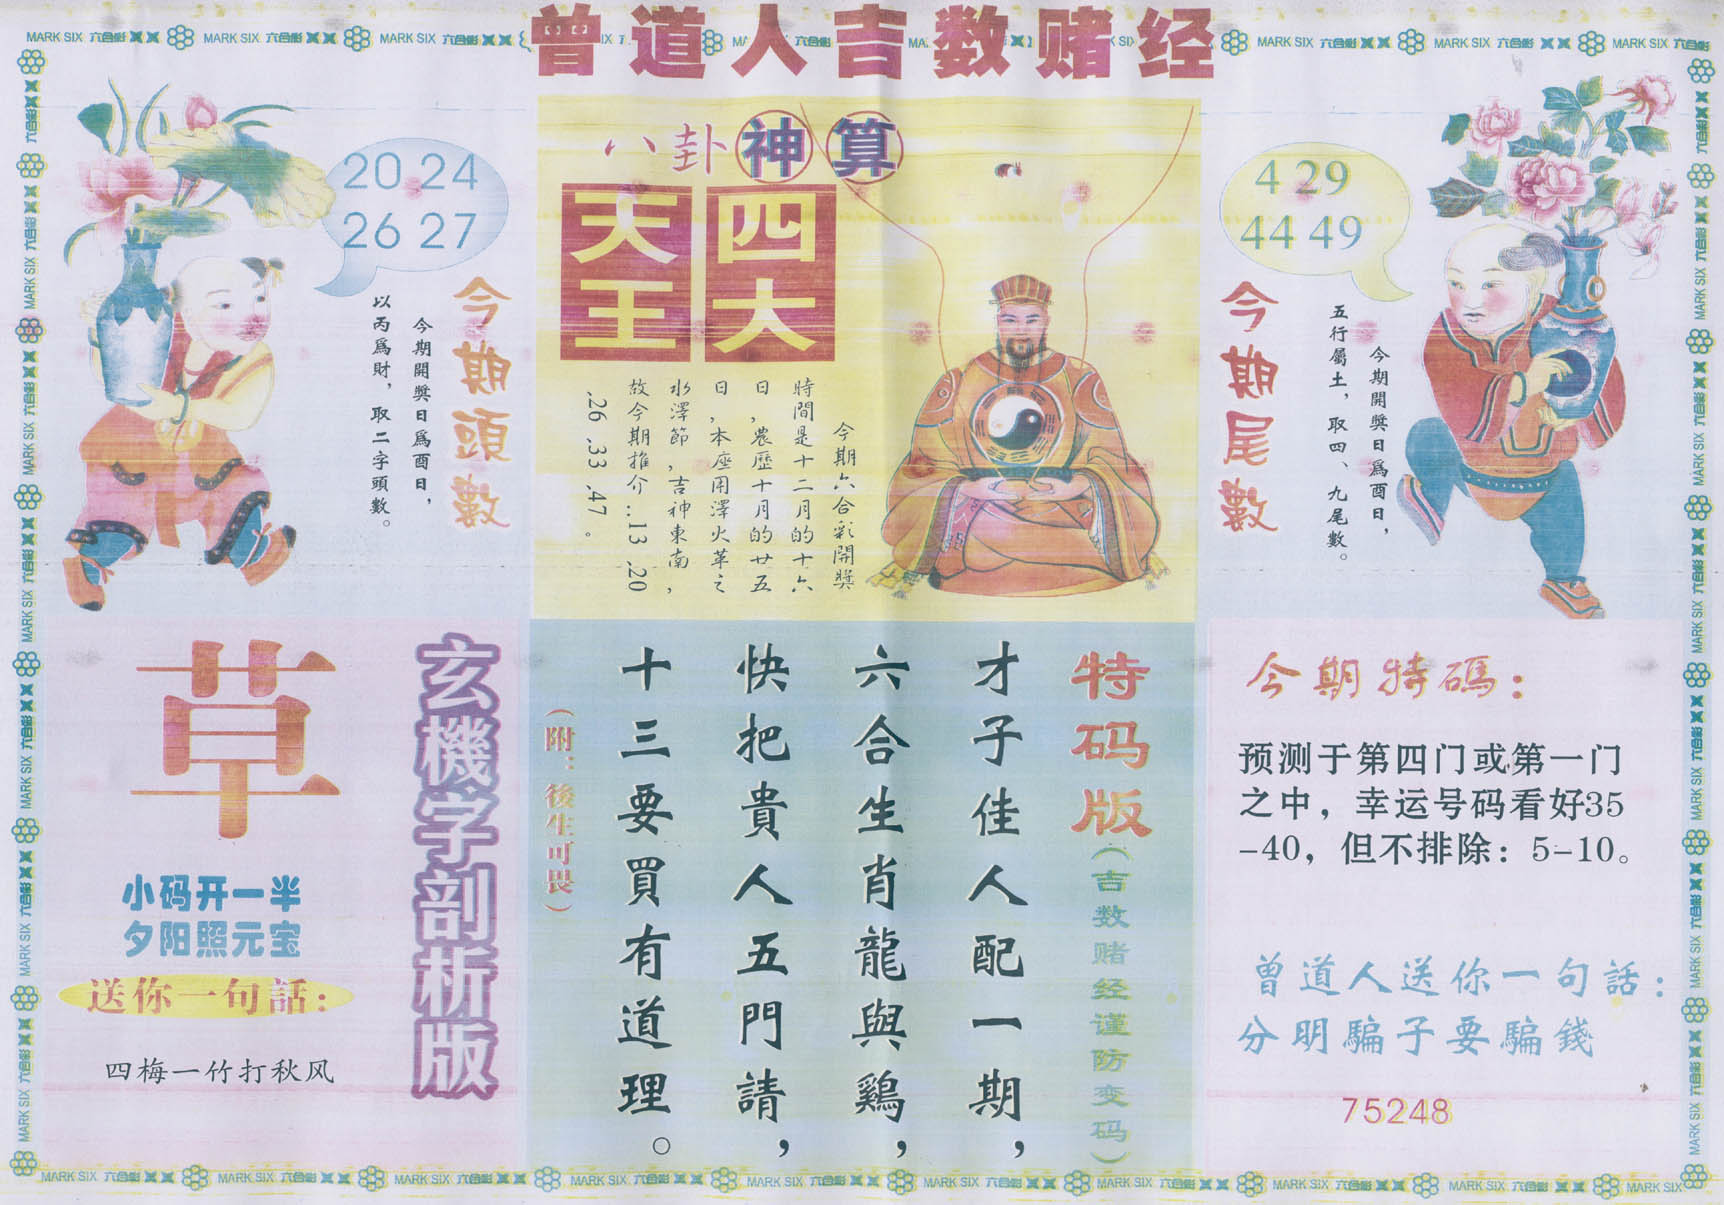 曾道人吉数赌经
MARK SIX 六合彩
20 24
26 27
今期頭數
今期開獎日爲酉日，
以丙爲財，取二字頭數。
八卦神算
四大
天王
今期六合彩開獎
時間是十二月的十六
日，農歷十月的廿五
日，本座用澤火革之
水澤節，吉神東南，
故今期推介..13 .20
.26 .33 .47 。
4 29
44 49
今期尾數
今期開獎日爲酉日，
五行屬土，取四、九尾數。
玄機字剖析版
草
小码开一半
夕阳照元宝
送你一句話：
四梅一竹打秋风
特码版（吉数赌经谨防变码）
才子佳人配一期，
六合生肖龍與鷄，
快把貴人五門請，
十三要買有道理。
（附：後生可畏）
今期特碼：
预测于第四门或第一门
之中，幸运号码看好35
-40，但不排除：5-10。
曾道人送你一句話：
分明騙子要騙錢
75248